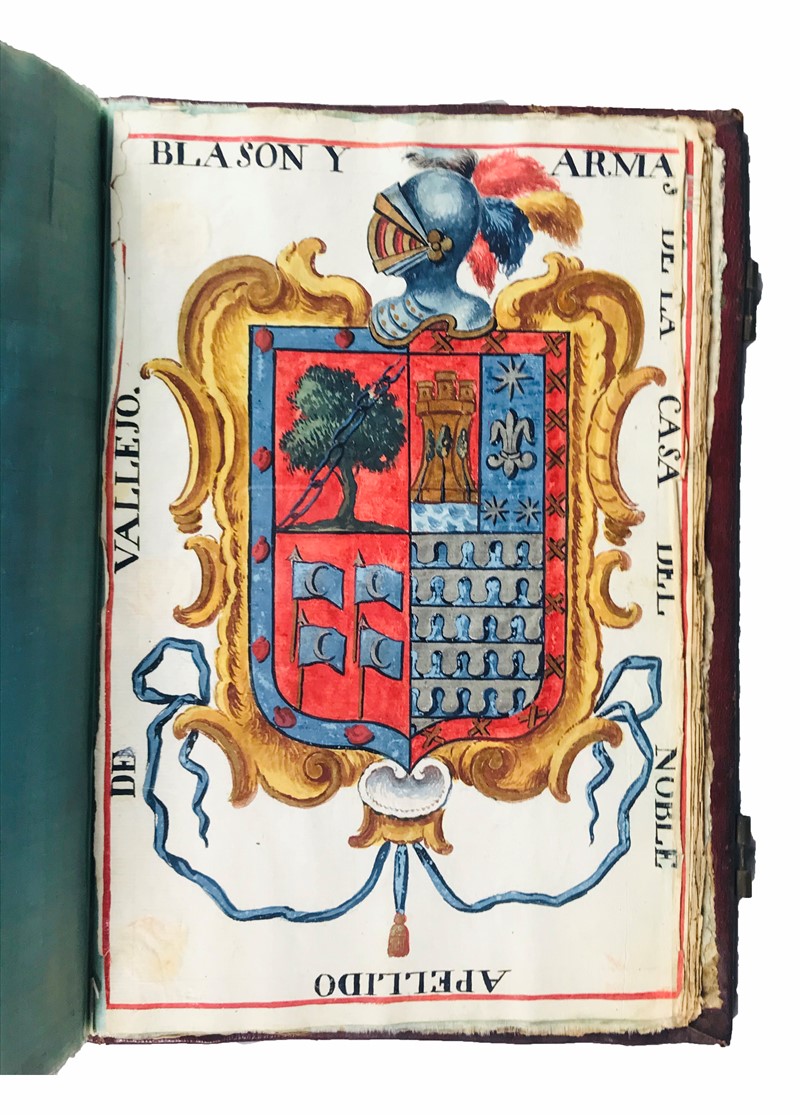 BLASON Y ARMAS
DE LA CASA DEL NOBLE
APELLIDO
DE VALLEJO.